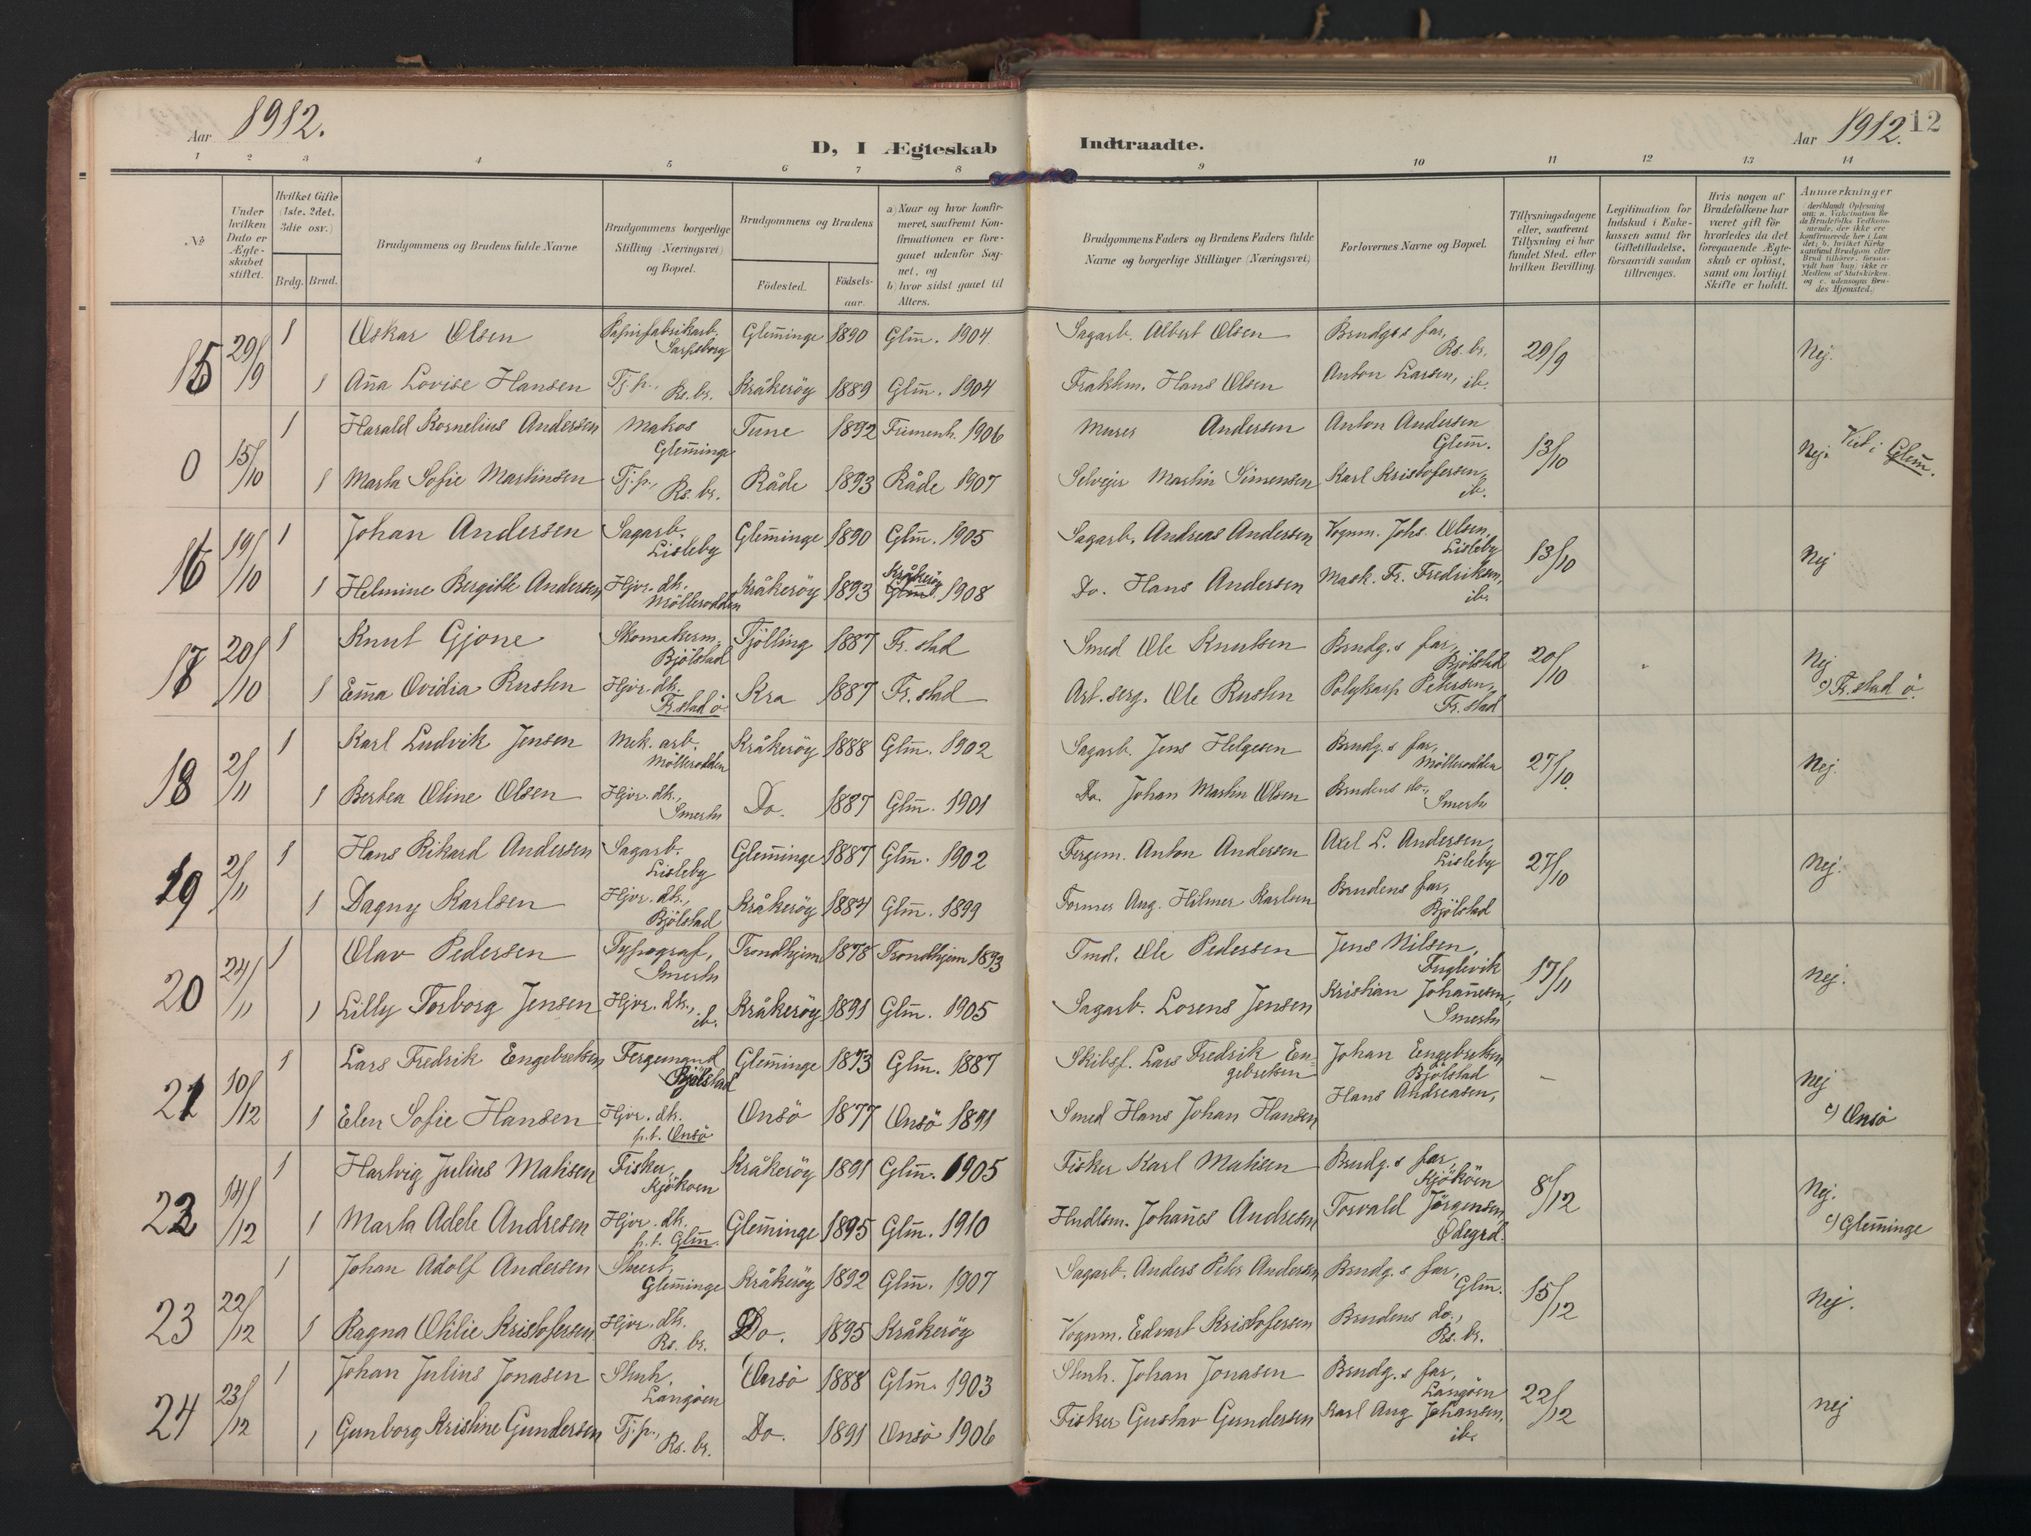 Aar 1912.
D, I Ægteskab Indtraadte.
Aar 1912. 12
1 2 3 4 5 6 7 8 9 10 11 12 13 14
No
Under hvilken Dato er Ægteskabet stiftet.
Hvilket Gifte (1ste, 2det, 3die osv.)
Brdg. Brud.
Brudgommens og Brudens fulde Navne
Brudgommens borgerlige Stilling (Næringsvei) og Bopæl.
Brudgommens og Brudens
Fødested. Fødselsaar.
a) Naar og hvor konfirmeret, saafremt Konfirmationen er foregaaet udenfor Sognet, og
b) hvor sidst gaaet til Alters.
Brudgommens Faders og Brudens Faders fulde Navne og borgerlige Stillinger (Næringsvei).
Forlovernes Navne og Bopæl.
Tillysningsdagene eller, saafremt Tillysning ei har fundet Sted, efter hvilken Bevilling.
Legitimation for Indskud i Enkekassen samt for Giftetilladelse, forsaavidt saadan tiltrænges.
Hvis nogen af Brudefolkene har været gift før hvorledes da det foregaaende Ægteskab er opløst, samt om lovligt Skifte er holdt.
Anmærkninger
(deriblandt Oplysning om: a. Vakcination for de Brudefolks Vedkommende, der ikke ere konfirmerede her i Landet; b. hvilket Kirke samfund Brudgom eller Brud tilhører, forsaavidt han (hun) ikke er Medlem af Statskirken og c. udensogns Brudes Hjemsted.)
15 29/9 1 Oskar Olsen Papirfabrikarb. Sarpsborg Glemminge 1890 Glm. 1904 Sagarb. Albert Olsen Brudg.s far, Rs. br. 29/9 Nej.
1 Anna Lovise Hansen Tj.p., Rs. br. Kråkerøy 1889 Glm. 1904 Hans Olsen Anton Larsen, ib.
0 15/10 1 Harald Kornelius Andersen Glemminge Tune 1892 1906 Murer Andersen Anton Andersen Glem. 13/10 Nej. Viet i Glem.
1 Marta Sofie Martinsen Tj.p., Rs. br. Råde 1893 Råde 1907 Selveier Martin Simensen Karl Kristofersen, ib.
16 19/10 1 Johan Andersen Sagarb. Lisleby Glemminge 1890 Glm. 1905 Sagarb. Andreas Andersen Vognm. Johs. Olsen, Lisleby 13/10 Nej
1 Helmine Bergitte Andersen Hjvr. dtr. Møllerodden Kråkerøy 1893 Kråkerøy Glm. 1908 Do. Hans Andersen Mask. Fr. Fredriksen, ib.
17 20/10 1 Knut Gjone Skomakerm. Bjølstad Tjølling 1887 Fr.stad Smed Ole Knutsen Brudg.s far, Bjølstad 20/10 Nej
1 Emma Ovidia Rusten Hjvr. dtr. Fr.stad ö. Kra 1887 Fr.stad Art. serg. Ole Rusten Polykarp Petersen, Fr.stad c) Fr.stad ö.
18 2/11 1 Karl Ludvik Jensen Mek. arb. Møllerodden Kråkerøy 1888 Glm. 1902 Sagarb. Jens Helgesen Brudg.s far, Møllerodden 27/10. Nej.
1 Bertea Oline Olsen Hjvr. dtr., Smertu Do. 1887 Glm. 1901 Do. Johan Martin Olsen Brudens do., Smertu
19 2/11 1 Hans Rikard Andersen Sagarb. Lisleby Glemminge 1887 Glm. 1902 Fergem. Anton Andersen Axel L. Andersen, Lisleby 27/10 Nej.
1 Dagny Karlsen Hjvr. dtr., Bjølstad Kråkerøy 1884 Glm. 1899 Former Aug. Hilmer Karlsen Brudens far, Bjølstad
20 24/11 1 Olav Pedersen Typograf, Smertu Trondhjem 1878 Trondhjem 1893 Tmd. Ole Pedersen Jens Nilsen, Fuglevik 17/11 Nej.
1 Lilly Torborg Jensen Hjvr. dtr., ib. Kråkerøy 1891 Glm. 1905 Sagarb. Lorens Jensen Kristian Johannesen, Smertu
21 10/12 1 Lars Fredrik Engebretsen Fergemand Bjølstad Glemminge 1873 Glm. 1887 Skibsf. Lars Fredrik Engebretsen Johan Engebretsen Bjølstad – Nej
1 Elen Sofie Hansen Hjvr. dtr. p.t. Onsö Onsö 1877 Onsö 1891 Smed Hans Johan Hansen Hans Andreasen, c) Onsö
22 14/12 1 Hartvig Julius Matisen Fisker, Kjøkøen Kråkerøy 1891 Glm. 1905 Fisker Karl Matisen Brudg.s far, Kjøkøen 8/12 Nej.
1 Marta Adele Andresen Hjvr. dtr. p.t. Glm. Glemminge 1895 Glm. 1910 Hndlsm. Johannes Andresen Torvald Jørgensen Ødegrd. c) Glemminge
23 22/12 1 Johan Adolf Andersen Glemminge Kråkerøy 1892 Glm. 1907 Sagarb. Anders Peter Andersen Brudg.s far, Glm. 15/12 Nej.
1 Ragna Otilie Kristofersen Hjvr. dtr. Rs. br. Do. 1895 Kråkerøy Vognm. Edvart Kristofersen Brudens do., Rs. br.
24 23/12 1 Johan Julius Jonasen Stenh. Langøen Onsö 1888 Glm. 1903 Stenh. Johan Jonasen Brudg.s far, Langøen 22/12 nej
1 Gunborg Kristine Gundersen Tj.p., Rs. br. Do. 1891 Onsö 1906 Fisker Gustav Gundersen Karl Aug Johansen, ib.